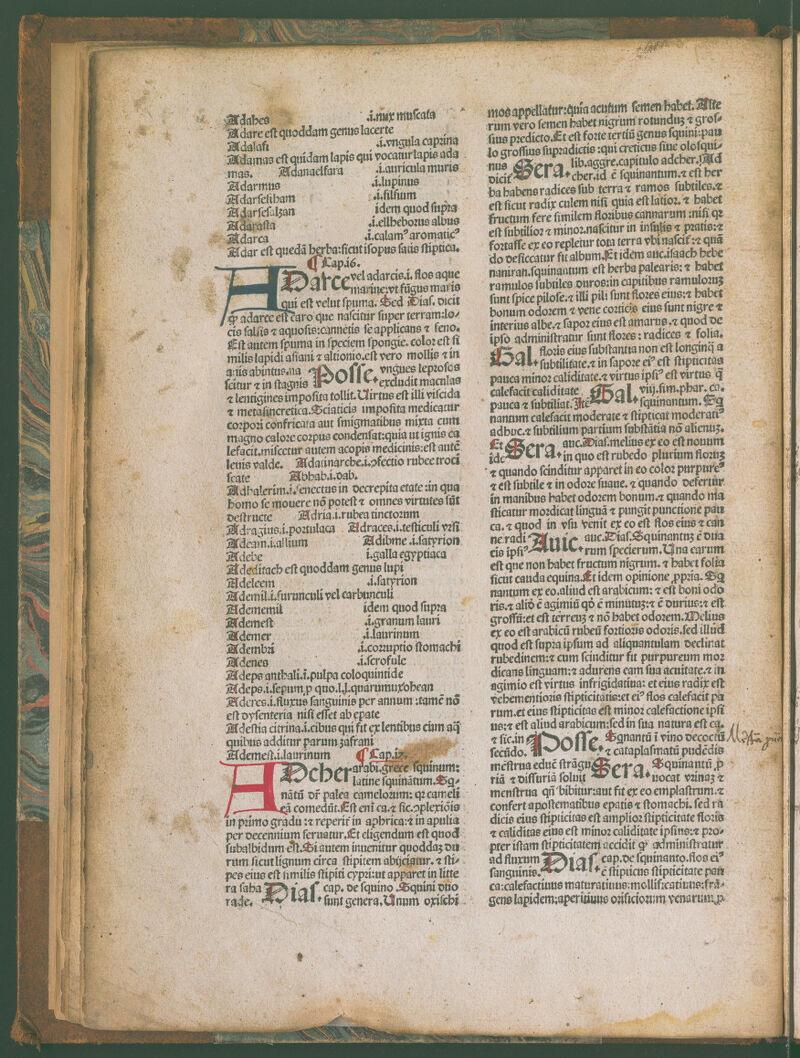 Adabes .i.nux muscata
Adare est quoddam genus lacerte
Adalasi .i.vngula caprina
Adamas est quidam lapis qui vocatur lapis ada
mas. Adanaelfara .i.auricula muris
Adarmus .i.lupinus
Adarsesiham .i.filsium
Adarsesalzan idem quod supra
Adarasta .i.ellheborus albus
Adarca .i.calamꝰ aromaticꝰ
Adar est quedā herba:sicut isopus satis stiptica.
¶ Cap.i6.
ADarce vel adarcis.i. flos aque
marine:vt fūgus maris
qui est velut spuma. Sed Dias. dicit
ꝙ adarce est caro que nascitur super terram:lo⸗
cis salsis ⁊ aquosis:cannetis se applicans ⁊ feno.
Est autem spuma in speciem spongie. color est si
milis lapidi asiani ⁊ altionio.est vero mollis ⁊ in
aq̄is abintus.na Posse. vngues leprosos
scitur ⁊ in stagnis excludit maculas
⁊ lentigines imposita tollit. Uirtus est illi viscida
⁊ metasincretica. Sciaticis imposita medicatur
corpori confricata aut smigmatibus mixta cum
magno calore corpus condensat:quia ut ignis ca
lefacit.miscetur autem acopis medicinis:est autē
leuis valde. Adatinarche.i.ↄfectio rubee troci
scate Abhab.i.dab.
Adhalerim.i.senectus in decrepita etate :in qua
homo se mouere nō potest ⁊ omnes virtutes sūt
destructe Adria.i.rubea tinctorum
Adragius.i.portulaca Adraces.i.testiculi vrsi
Adeam.i.allium Adibme .i.satyrion
Adebe .i.galla egyptiaca
Adeditach est quoddam genus lupi
Adeleem .i.satyrion
Ademil.i.furunculi vel carbunculi
Adememil idem quod supra
Ademest .i.granum lauri
Ademer .i.laurinum
Adembri .i.corruptio stomachi
Adenes .i.scrofule
Adeps anthali.i.pulpa coloquintide
Adeps.i.sepum.p quo.l.l.quarumuxobean
Aderes.i.fluxus sanguinis per annum :tamē nō
est dysenteria nisi esset ab epate
Adestia citrina.i.cibus qui fit ex lentibus cum aq̄
quibus additur parum zafrani
Ademest.i.laurinum ¶ Cap.i7.
ADcher arabi.grece squinum:
latine squinātum. Sq̄⸗
nātū dr̄ palea camelorum: qr cameli
eā comedūt. Est eni ca.⁊ sic.ↄplexiōis
in primo gradu :⁊ reperir̄ in aphrica:⁊ in apulia
per decennium seruatur. Et eligendum est quod
subalbidum est. Si autem inuenitur quoddaz du
rum sicut lignum circa stipitem abijciatur. ⁊ sti⸗
pes eius est similis stipiti cypri:ut apparet in litte
ra saba Dias. cap. de squino. Squini duo
rade. sunt genera. Unum oxischi
mos appellatur:quia acutum semen habet. Alte
rum vero semen habet nigrum rotunduz ⁊ gros⸗
sius predicto. Et est forte tertiū genus squini:pau
lo grossius supradictis :qui creticus siue olosqui⸗
nus Sera. lib.aggre.capitulo adcher. Ad
dicit cher.id ē squinantum.⁊ est her
ba habens radices sub terra ⁊ ramos subtiles.⁊
est sicut radix culem nisi quia est latior. ⁊ habet
fructum fere similem floribus cannarum :nisi qr
est subtilior ⁊ minor.nascitur in insulis ⁊ pratis:⁊
fortasse ex eo repletur tota terra vbi nascit̄ :⁊ quā
do desiccatur fit album. Et idem auc.isaach hebe
naniran.squinantum est herba palearis: ⁊ habet
ramulos subtiles duros:in capitibus ramuloruz
sunt spice pilose.⁊ illi pili sunt flores eius:⁊ habet
bonum odorem ⁊ vene corticis eius sunt nigre ⁊
interius albe.⁊ sapor eius est amarus.⁊ quod de
ipso administratur sunt flores : radices ⁊ folia.
Gal. floris eius substantia non est longinq̄ a
subtilitate.⁊ in sapore eiꝰ est stipticitas
pauca minor caliditate.⁊ virtus ipsiꝰ est virtus q̄
calefacit caliditate Gal. viij.sim.phar. ca.
pauca ⁊ subtiliat. Itē squinantum. Sq̄
nantum calefacit moderate ⁊ stipticat moderatiꝰ
adhuc.⁊ subtilium partium substātia nō alienuz.
Et Sera. auc. Dias.melius ex eo est nouum
idē in quo est rubedo plurium floruz
⁊ quando scinditur apparet in eo color purpureꝰ
⁊ est subtile ⁊ in odore suaue. ⁊ quando defertur
in manibus habet odorem bonum.⁊ quando ma
sticatur mordicat linguā ⁊ pungit punctione pau
ca. ⁊ quod in vsu venit ex eo est flos eius ⁊ can
ne radi Auic. auc. Dias. Squinantuz ē dua
cis ipsiꝰ rum specierum. Una earum
est que non habet fructum nigrum. ⁊ habet folia
sicut cauda equina. Et idem opinione ppria. Sq̄
nantum ex eo.aliud est arabicum: ⁊ est boni odo
ris.⁊ aliō ē agimiū qō ē minutuz:⁊ ē durius:⁊ est
grossū:et est terreuz ⁊ nō habet odorem. Melius
ex eo est arabicū rubeū fortioris odoris.sed illud
quod est supra ipsum ad aliquantulam declinat
rubedinem:⁊ cum scinditur fit purpureum mor
dicans linguam:⁊ adurens eam sua acuitate.⁊ in
agimio est virtus infrigidatiua: et eius radix est
vehementioris stipticitatis:et eiꝰ flos calefacit pa
rum.et eius stipticitas est minor calefactione ipsi
us:⁊ est aliud arabicum:sed in sua natura est ca.
⁊ sic.in Posse. Sq̄nantū ī vino decoctū
secūdo. ⁊ cataplasmatū pudēdis
mēstrua educ̄ strāgu Sera. Squinantū ,p
riā ⁊ dissuriā soluit uocat vrinaz ⁊
menstrua qn̄ bibitur:aut fit ex eo emplastrum.⁊
confert apostematibus epatis ⁊ stomachi. sed ra
dicis eius stipticitas est amplior stipticitate floris
⁊ caliditas eius est minor caliditate ipsius:⁊ pro⸗
pter istam stipticitatem accidit ꝙ administratur
ad fluxum Dias. cap.de squinanto.flos eiꝰ
sanguinis. ē stipticus stipticitate pau
ca:calefactiuus maturatiuus:mollificatiuus:frā⸗
gens lapidem;aperitiuus orificiorum venarum.ꝓ